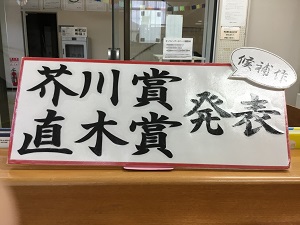 芥川賞
直木賞
発表
候補作